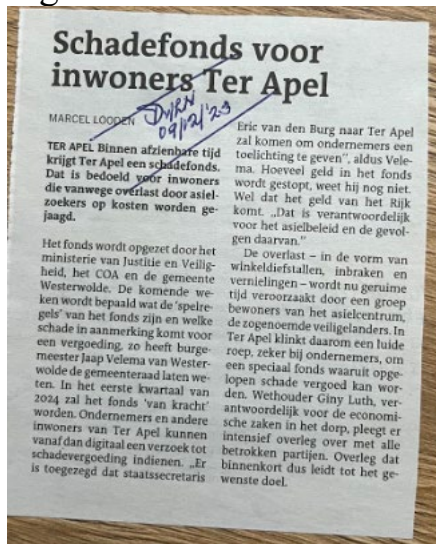 Schadefonds voor
inwoners Ter Apel
MARCEL LOODEN
DvhN
09/12/'23
TER APEL Binnen afzienbare tijd
krijgt Ter Apel een schadefonds.
Dat is bedoeld voor inwoners
die vanwege overlast door asiel-
zoekers op kosten worden ge-
jaagd.
Het fonds wordt opgezet door het
ministerie van Justitie en Veilig-
heid, het COA en de gemeente
Westerwolde. De komende we-
ken wordt bepaald wat de 'spelre-
gels' van het fonds zijn en welke
schade in aanmerking komt voor
een vergoeding, zo heeft burge-
meester Jaap Velema van Wester-
wolde de gemeenteraad laten we-
ten. In het eerste kwartaal van
2024 zal het fonds 'van kracht'
worden. Ondernemers en andere
inwoners van Ter Apel kunnen
vanaf dan digitaal een verzoek tot
schadevergoeding indienen. „Er
is toegezegd dat staatssecretaris
Eric van den Burg naar Ter Apel
zal komen om ondernemers een
toelichting te geven”, aldus Vele-
ma. Hoeveel geld in het fonds
wordt gestopt, weet hij nog niet.
Wel dat het geld van het Rijk
komt. „Dat is verantwoordelijk
voor het asielbeleid en de gevol-
gen daarvan.”
De overlast – in de vorm van
winkeldiefstallen, inbraken en
vernielingen – wordt nu geruime
tijd veroorzaakt door een groep
bewoners van het asielcentrum,
de zogenoemde veiligelanders. In
Ter Apel klinkt daarom een luide
roep, zeker bij ondernemers, om
een speciaal fonds waaruit opge-
lopen schade vergoed kan wor-
den. Wethouder Giny Luth, ver-
antwoordelijk voor de economi-
sche zaken in het dorp, pleegt er
intensief overleg over met alle
betrokken partijen. Overleg dat
binnenkort dus leidt tot het ge-
wenste doel.